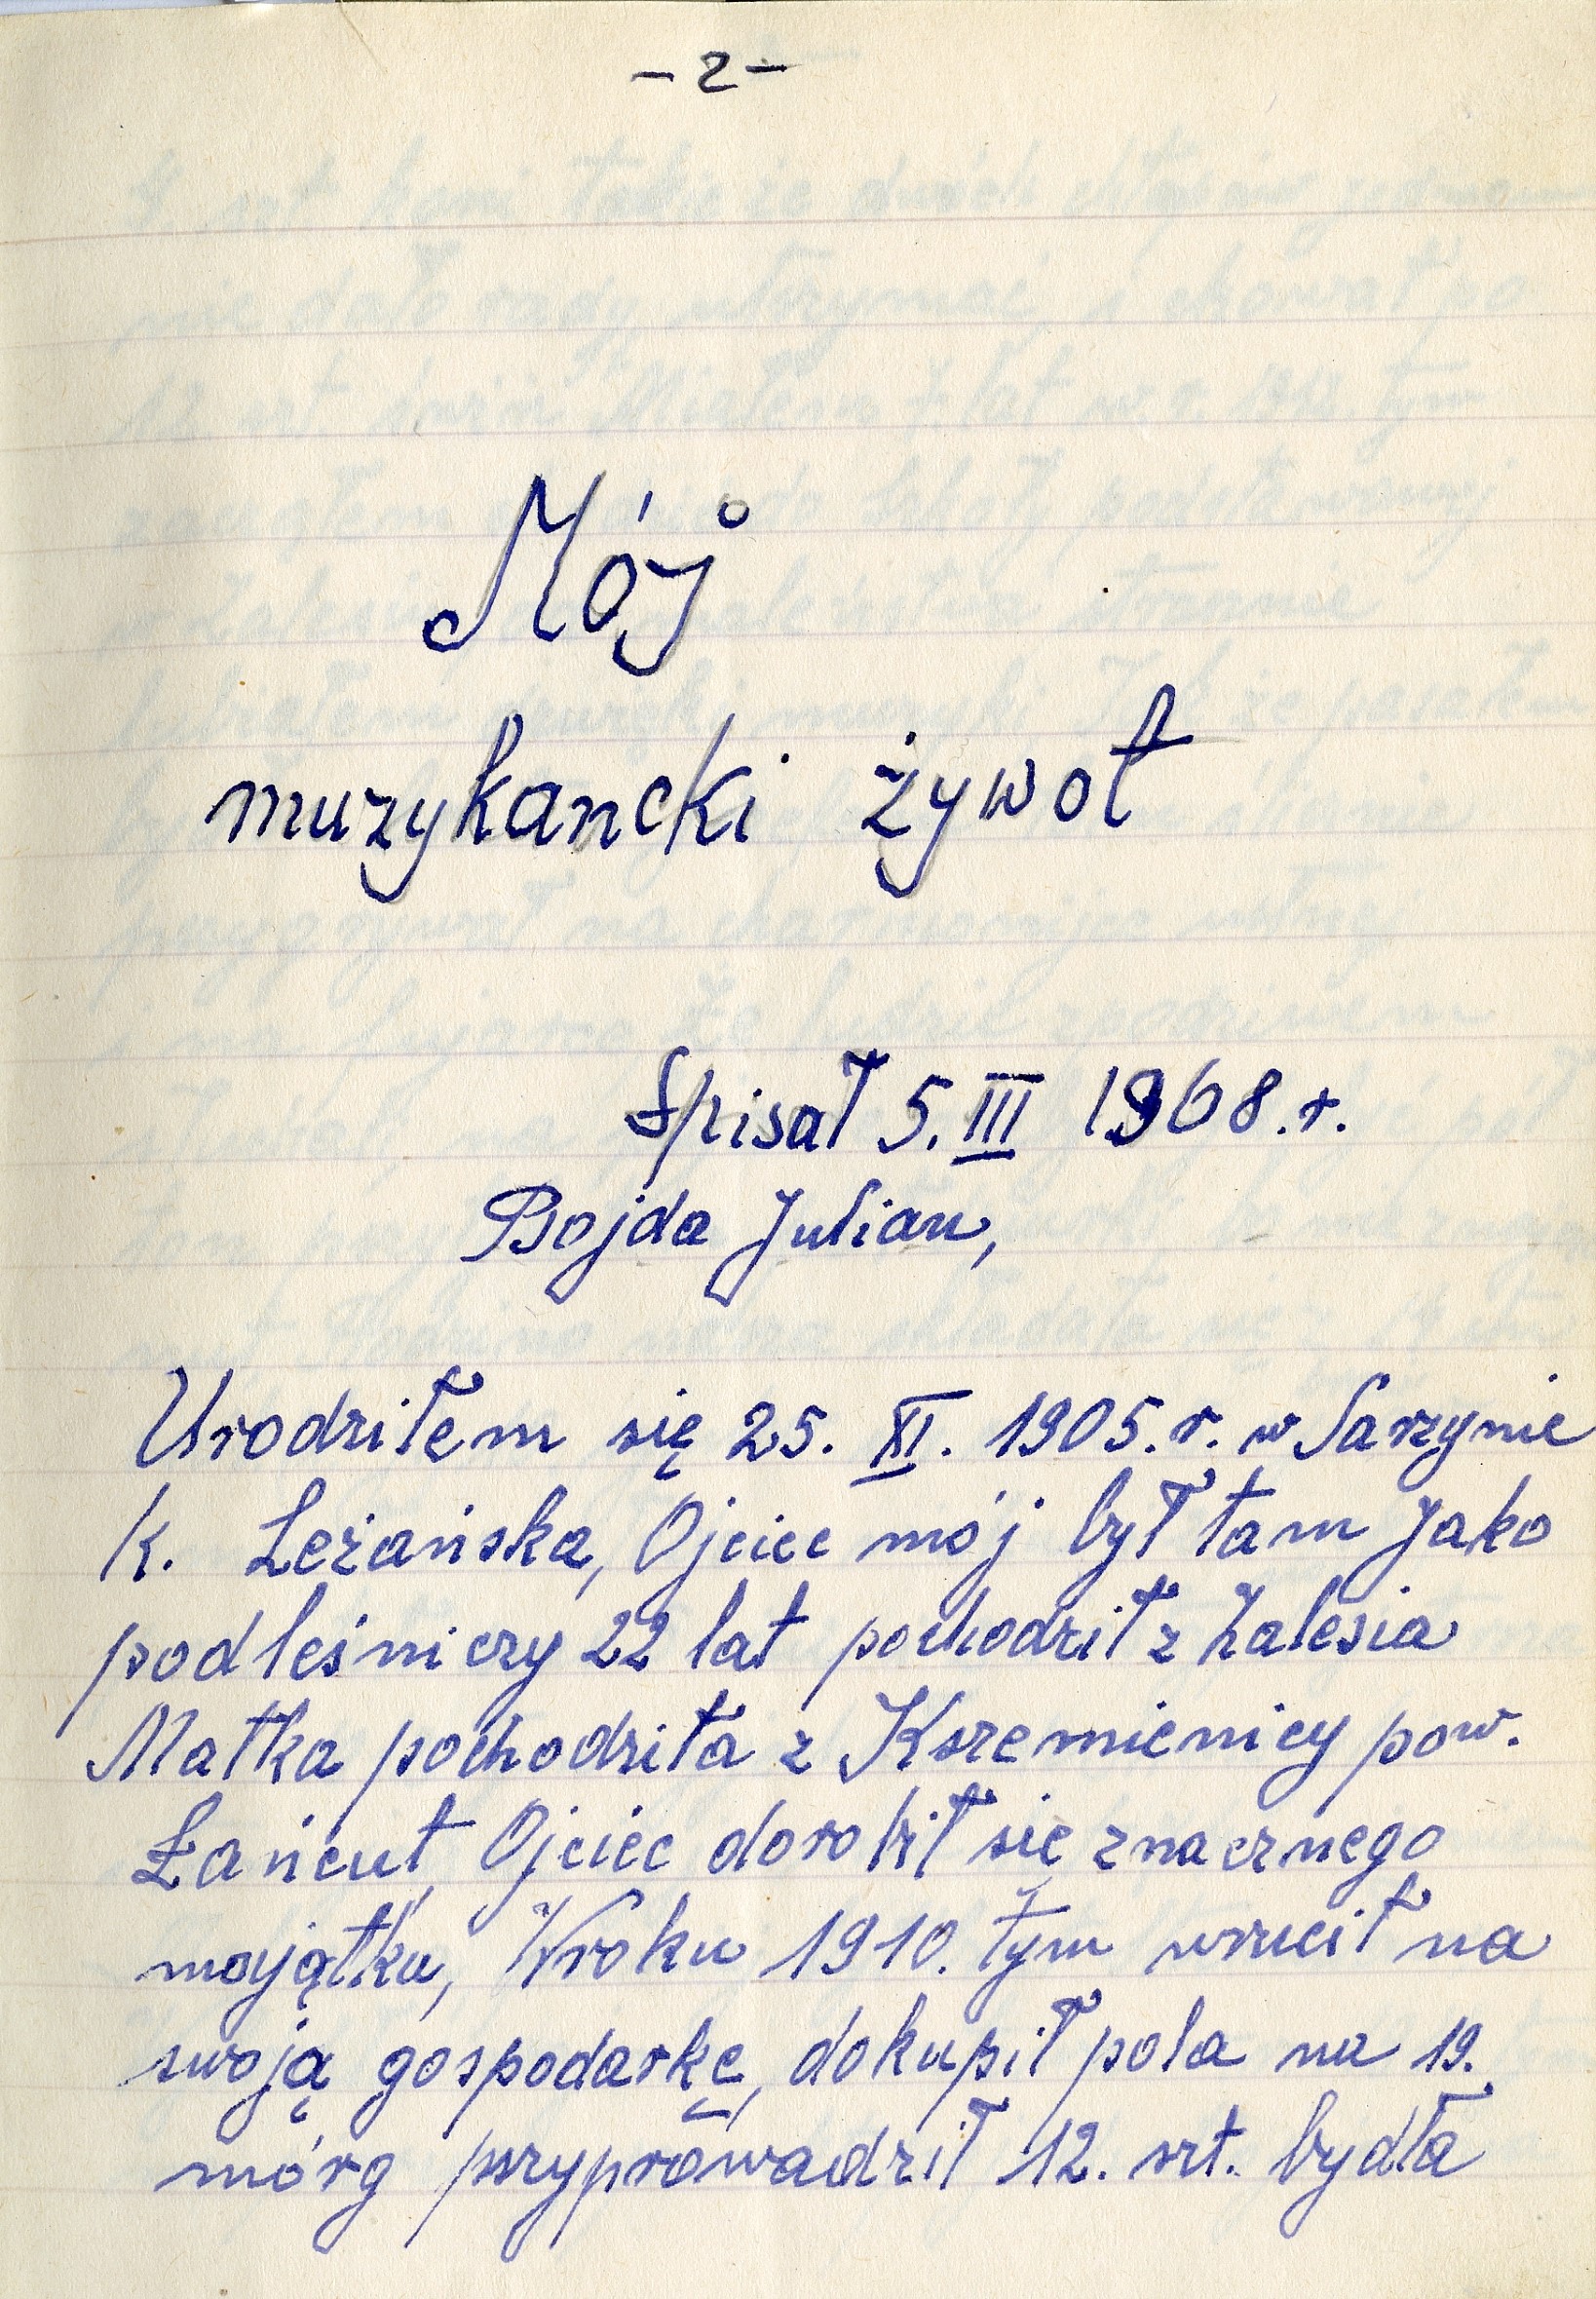 - 2 -
Mój
muzykancki żywot
Spisał 5. III 1968. r.
Bojda Julian,
Urodziłem się 25. XI. 1905. r. w Sarzynie
k. Leżańska, Ojciec mój był tam Jako
podleśniczy 22 lat pochodził z Zalesia
Matka pochodziła z Krzemienicy pow.
Łańcut, Ojciec dorobił się znacznego
majątku, Wroku 1910. tym wrucił na
swoją gospodarkę, dokupił pola na 19.
mórg przyprowadził 12. szt. bydła